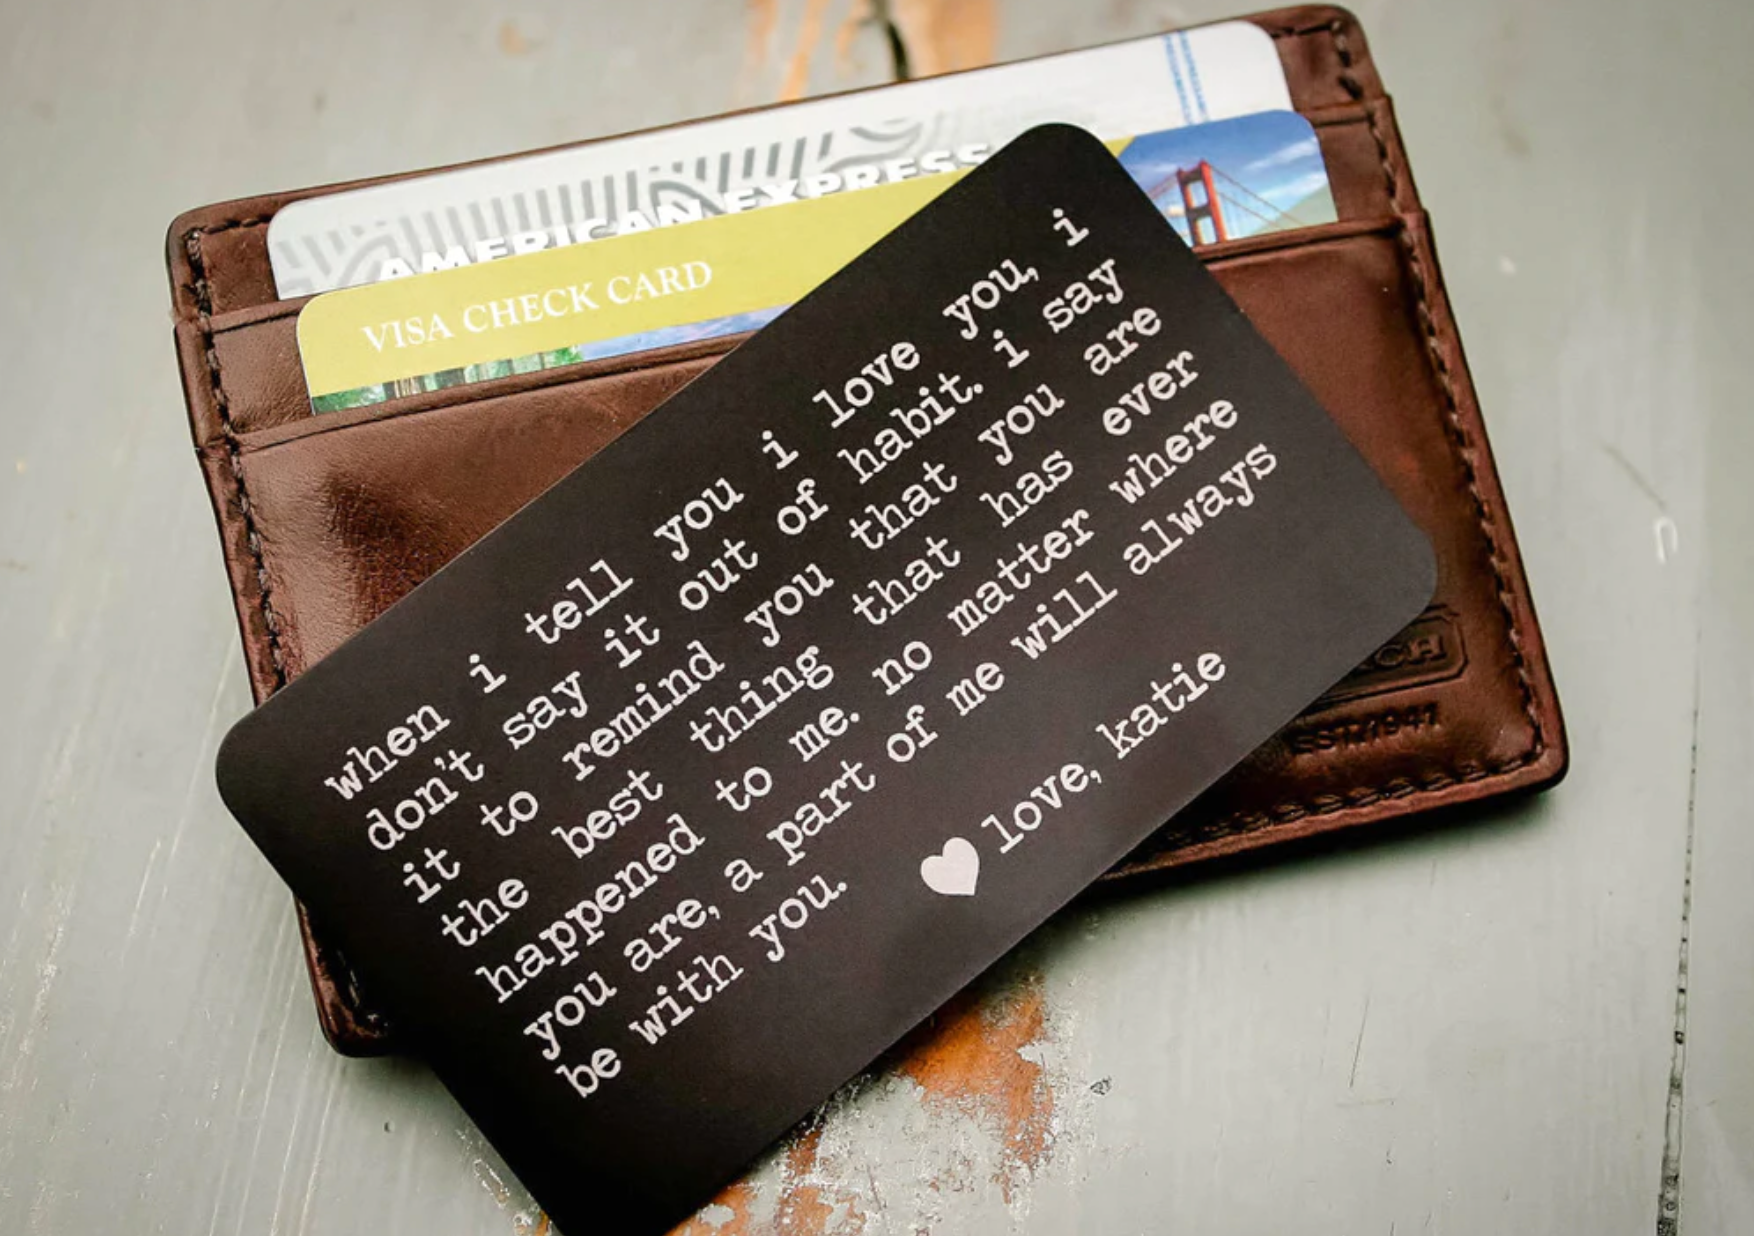 AMERICAN EXPRESS
VISA CHECK CARD
when i tell you i love you, i
don't say it out of habit. i say
it to remind you that you are
the best thing that has ever
happened to me. no matter where
you are, a part of me will always
be with you.
love, katie
EST.1941